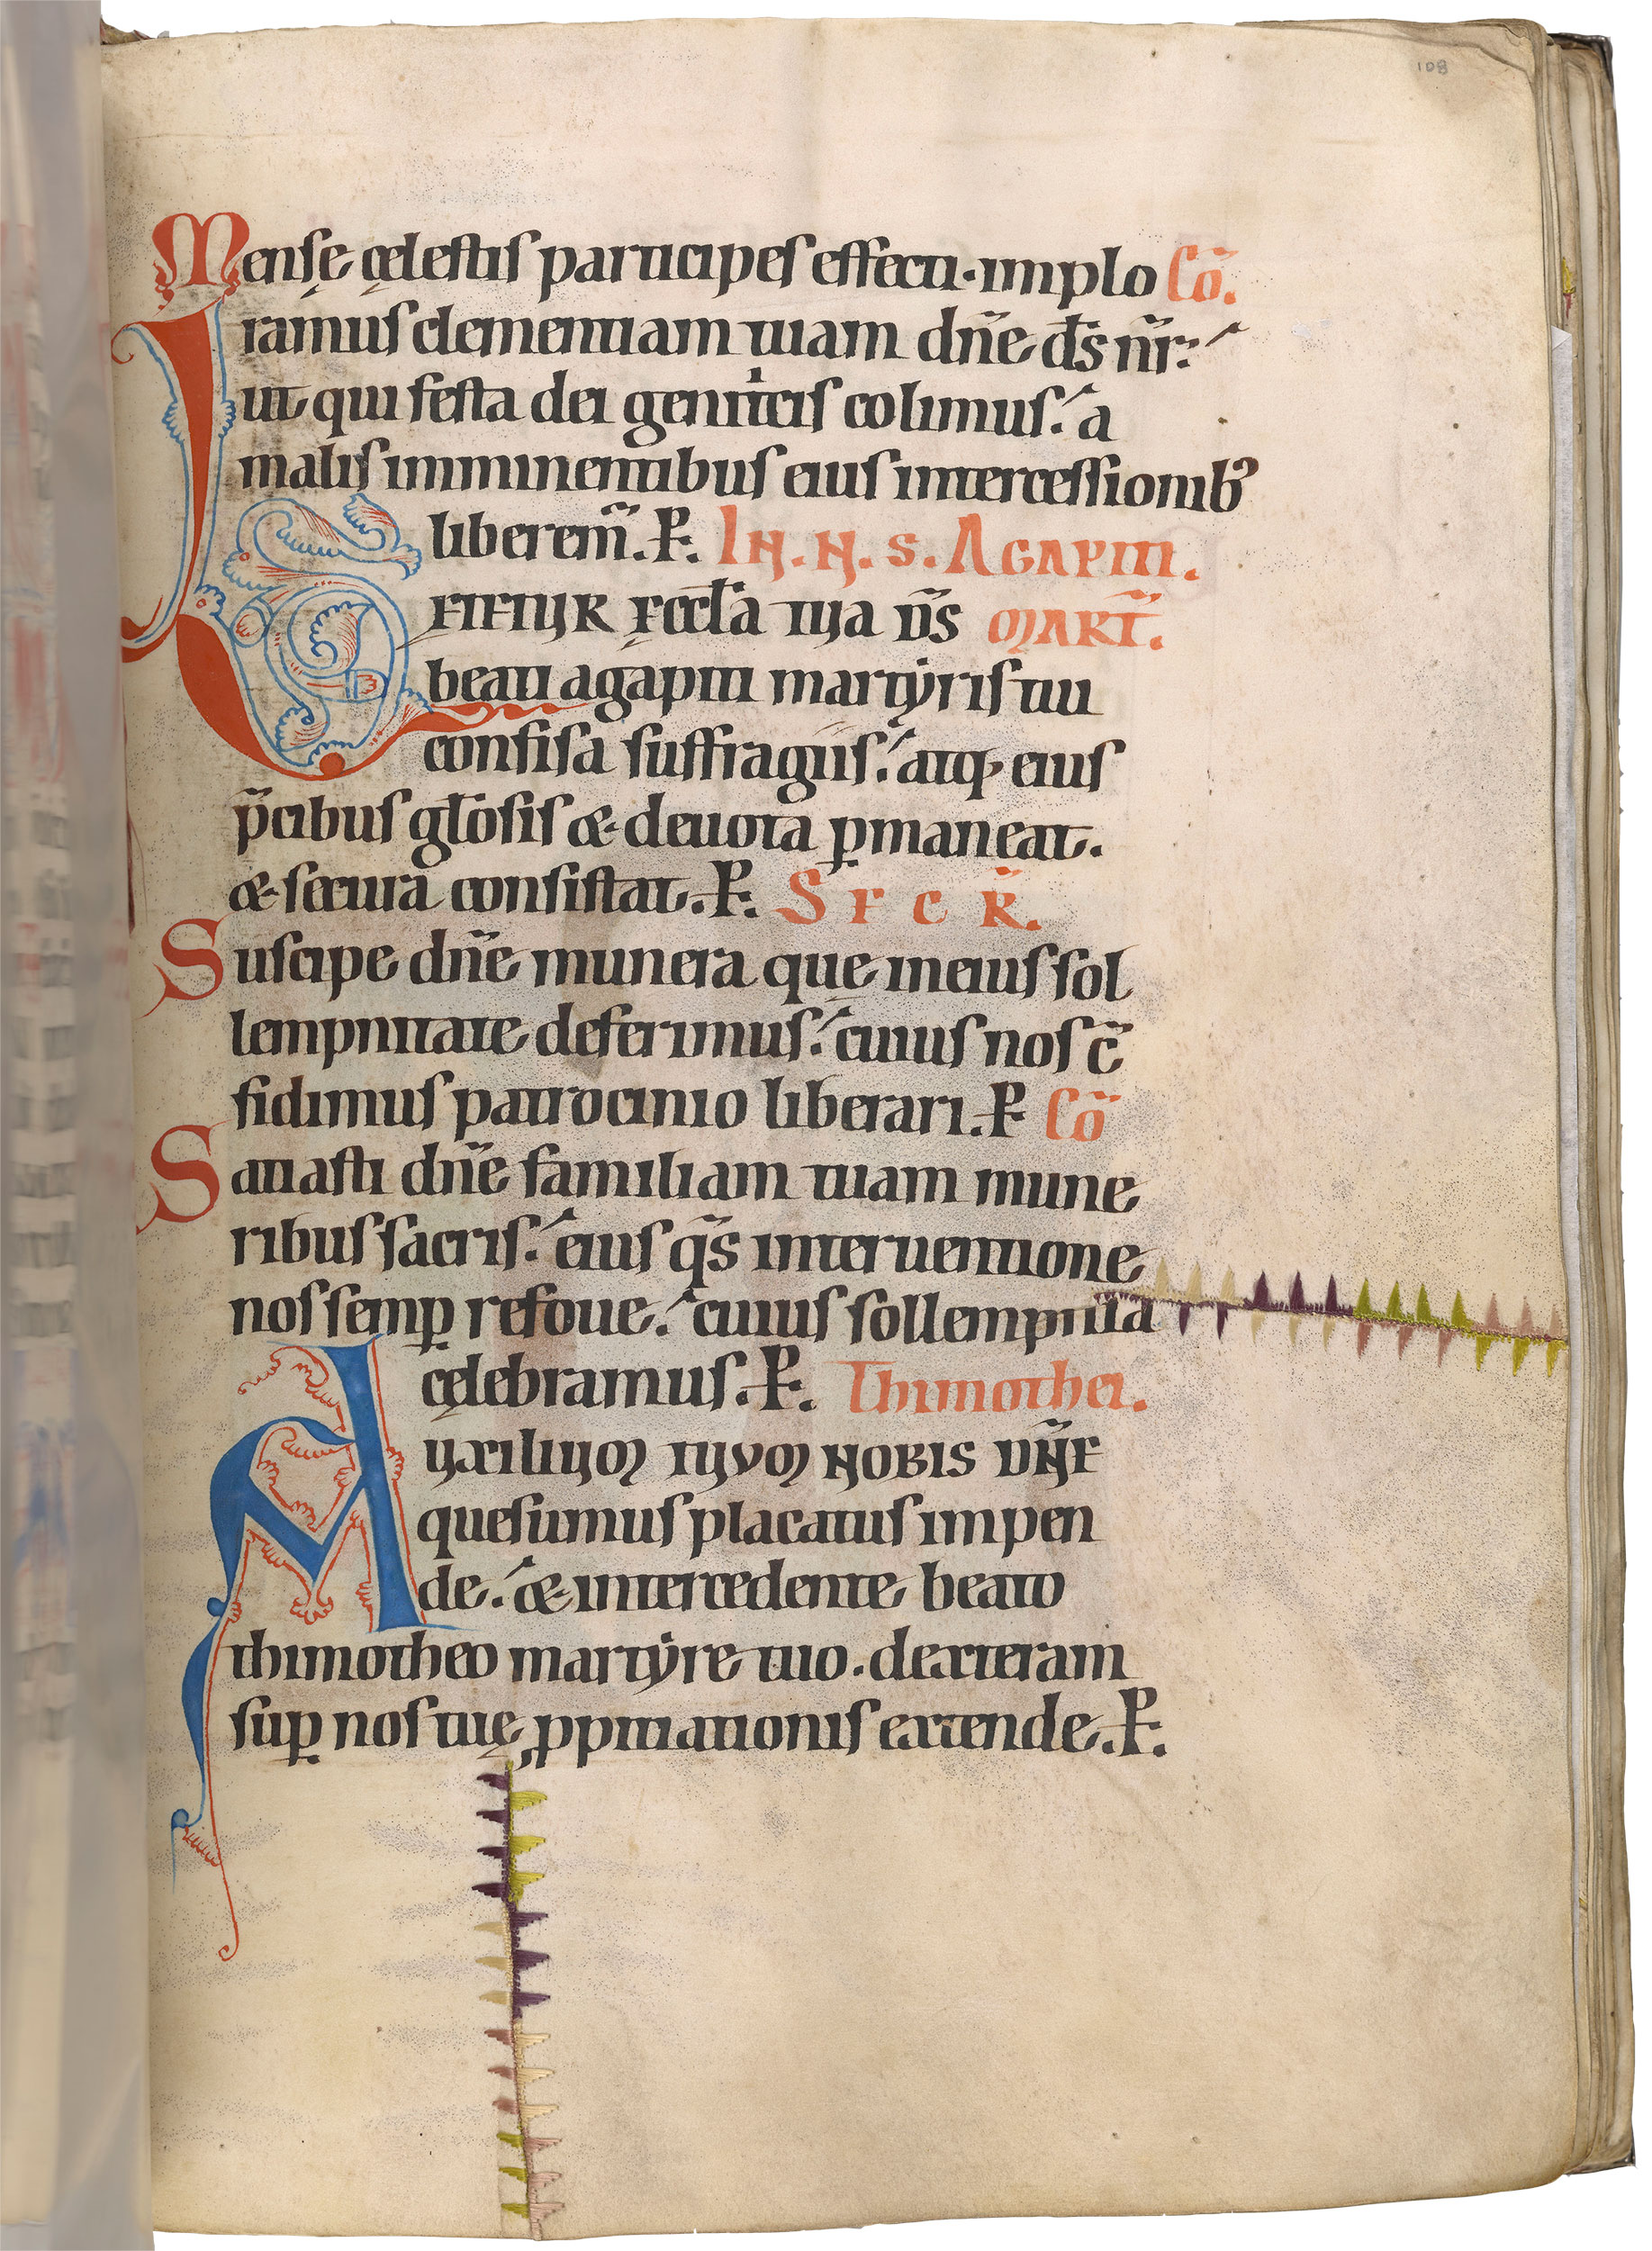 108
Mensę cęlestis participes effecti· implo Cō.
ramus clementiam tuam dn̄e d̄s nr̄:
ut qui festa dei genitͥcis colimus: a
malis imminentibus eius intercessionibꝰ
liberem̄. P̶. IN. N. S. AGAPITI.
LETETUR ECCL̄A TUA D̄S MART̄.
beati agapiti martẏris tui
confisa suffragiis: atq; eius
p̄cibus gl̄osis & deuota ꝑmaneat.
& secura consistat. P̶. SECR̄.
Suscipe dn̄e munera que in eius sol
lempnitate deferimus: cuius nos c̄
fidimus patrocinio liberari. P̶ Cō
Satiasti dn̄e familiam tuam mune
ribus sacris: eius q̄s interuentione
nos semꝑ refoue: cuius sollempnia
cęlebramus. P̶. Thimothei.
AUXILIUM TUUM NOBIS DN̄E
quesumus placatus impen
de: & intercedente beato
thimotheo martẏre tuo. dexteram
suꝑ nos tuę ꝓpitiationis extende. P̶.